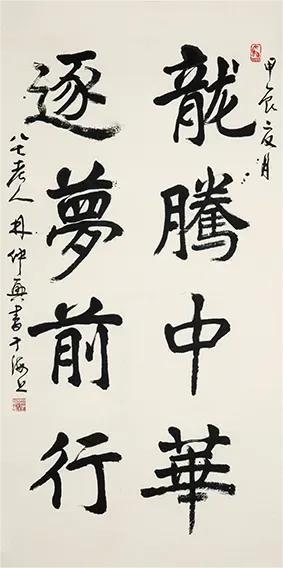 甲辰夏月
龍騰中華
逐夢前行
八七老人林仲興書于海上